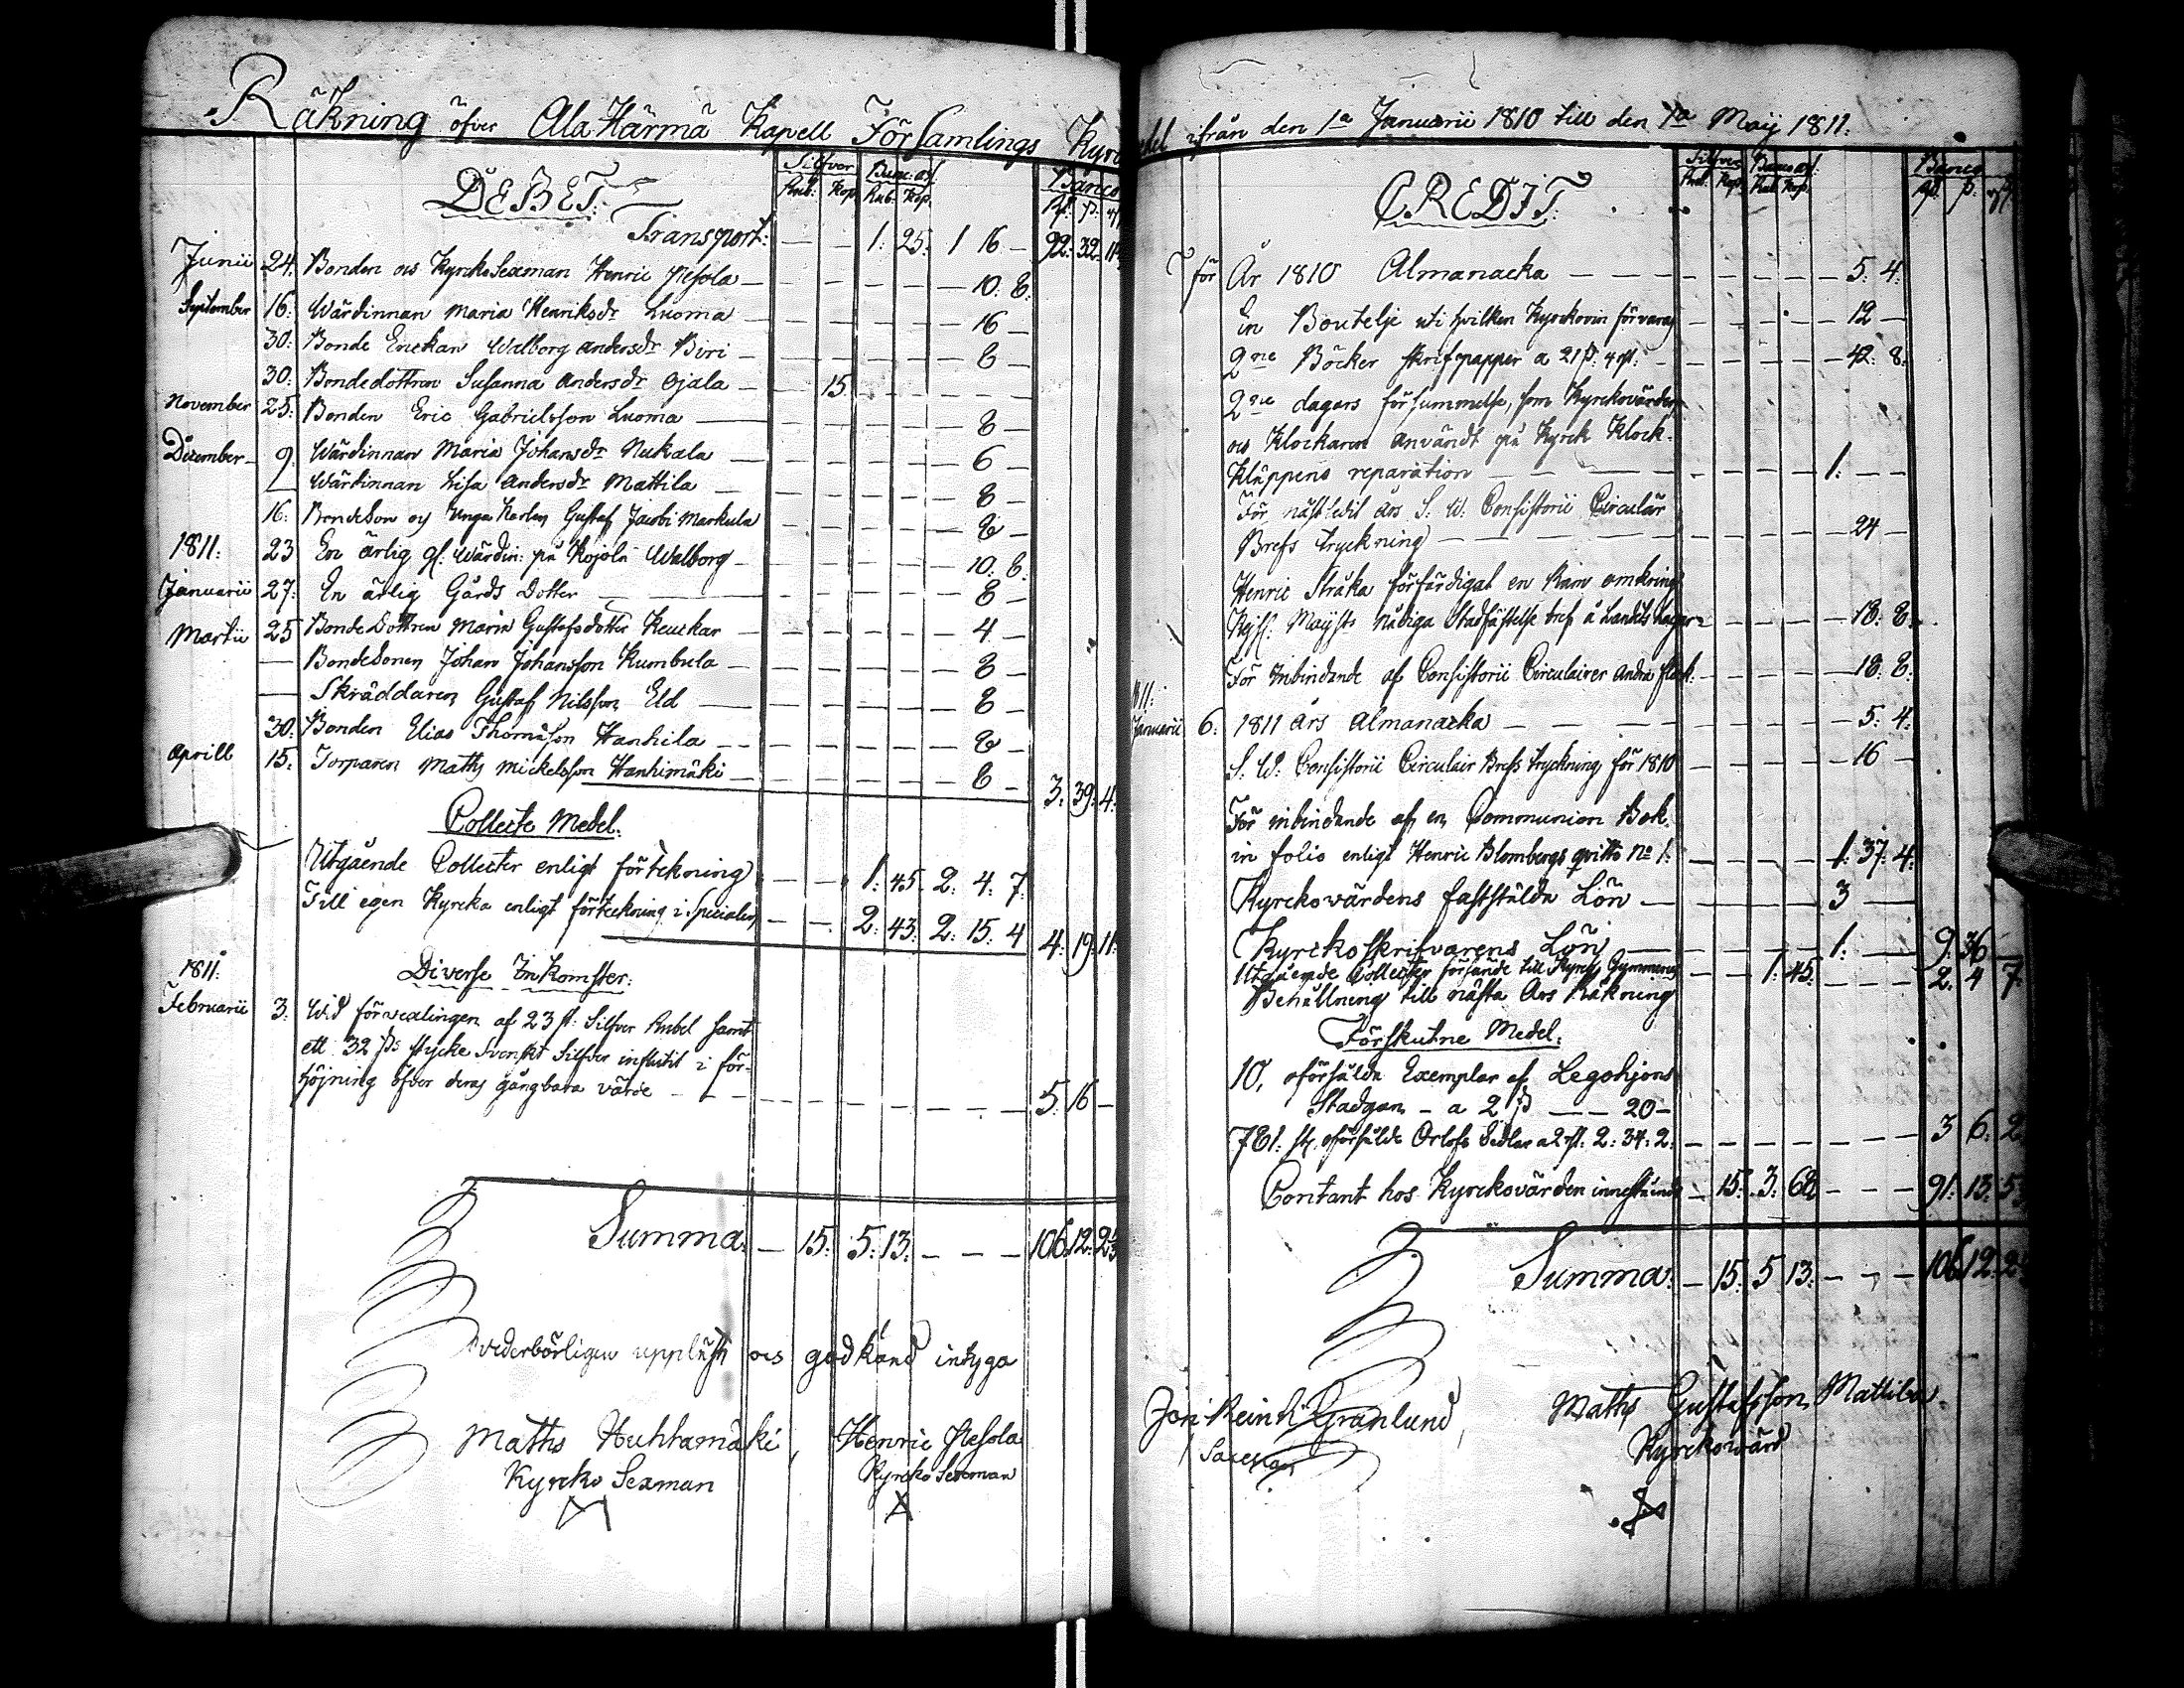 Räkning öfver Ala Härmä Kapell Församlings Kyrc
DEBET:
Silfver Banc: ass: Banco
Rub: Kop. Rub: Kop. Rd: ß: rst
Transport: — — 1: 25: 1 16 — 92: 32: 11
Junii 24: Bonden ocs KyrckoSexman Henric Pesola — 10: 8:
September 16: Wärdinnan Maria Henriksdr Luoma — 16 —
30: Bonde Enckan Walborg Andersdr Biri — 8 —
30: Bondedottren Susanna Andersdr Ojala — 15
November 25: Bonden Eric Gabrielsson Luoma — 8 —
December 9: Wärdinnan Maria Johansdr Nukala — 6 —
Wärdinnan Lisa Andersdr Mattila — 8 —
16: BondeSon och Unga Karlen Gustaf Jacobi Markula — 8 —
1811: 23 En ärlig gl: Wärdin: på Kojola Walborg — 10: 8:
Januarii 27: En ärlig Gårds Dotter — 8 —
Martii 25 BondeDottren Maria Gustafsdotter Keuckar — 4 —
— BondeSonen Johan Johansson Kumbula — 8 —
— Skräddaren Gustaf Nilsson Eld — 8 —
30: Bonden Elias Thomasson Hanhila — 8 —
Aprill 15: Torparen Maths Mickelsson Hanhimäki — 8 — 3: 39: 4:
Collecte Medel:
Utgående Collecter enligt förtekning — — 1: 45 2: 4: 7:
Till egen Kyrcka enligt förteckning i Specialen — — 2: 43: 2: 15: 4 4: 19: 11:
1811: Diverse Inkomster:
Februarii 3: Wid förvexlingen af 23 st: Silfver Rubel samt
ett 32 ßs stycke Svenskt Silfver influtit i för-
höjning öfver deras gångbara värde — 5: 16 —
Summa: — 15: 5: 13: — — — 106: 12: 2
Wederbörligen uppläst ocs godkänd intyga
Maths Huhtamäki, Henric Pesola
Kyrcko Sexman Kyrcko Sexman
del ifrån den 1a Januarii 1810 till den 1a Maij 1811:
CREDIT:
Silfver Banc: ass: Banco
Rub: Kop. Rub: Kop. Rd: ß: rst
för År 1810 Almanacka — 5: 4:
En Boutelje uti hvilken Kyrckovin förvaras — 12 —
2ne Böcker skrifpapper a 21 ß: 4 rst: — 42: 8:
2ne dagars försummelse, som Kyrckovärden
ocs Klockaren användt på Kyrck Klock-
Kläppens reparation — 1: — —
För nästledit års S: W: Consistorii Circulär
Brefs tryckning — 24 —
Henric Stråka förfärdigat en Ram omkring
Kejs: Maijsts Nådiga Stadfästelse bref å Landets Lagar — 18: 8:
För Inbindande af Consistorii Circulairer andra flock: — 18: 8:
1811:
Januarii 6: 1811 års Almanacka — 5: 4:
S: W: Consistorii Circulair Brefs tryckning för 1810 — 16 —
För inbindande af en Communion Bok
in folio enligt Henric Blombergs qvitto No 1: — 1: 37: 4:
Kyrckovärdens faststälda Lön — 3 —
Kyrckoskrifvarens Lön — 1: — 9: 36
Utgående Collecter försände till Gymnasii — — 1: 45: — — — 2: 4 7:
Behållning till nästa Års Räkning
Förskutne Medel:
10, oförsålda Exemplar af Legohjons
Stadgan — a 2 ß — — 20 —
781: st: oförsålde Orlofs Sedlar a 2 rst: 2: 34: 2: — 3 6: 2
Contant hos Kyrckovärden innestående — 15: 3: 68 — — — 91: 13: 5:
Summa: — 15: 5 13: — — — 106 12: 2
Joh: Reinh: Granlund, Maths Gustafsson Mattila
Sacellan Kyrckovärd